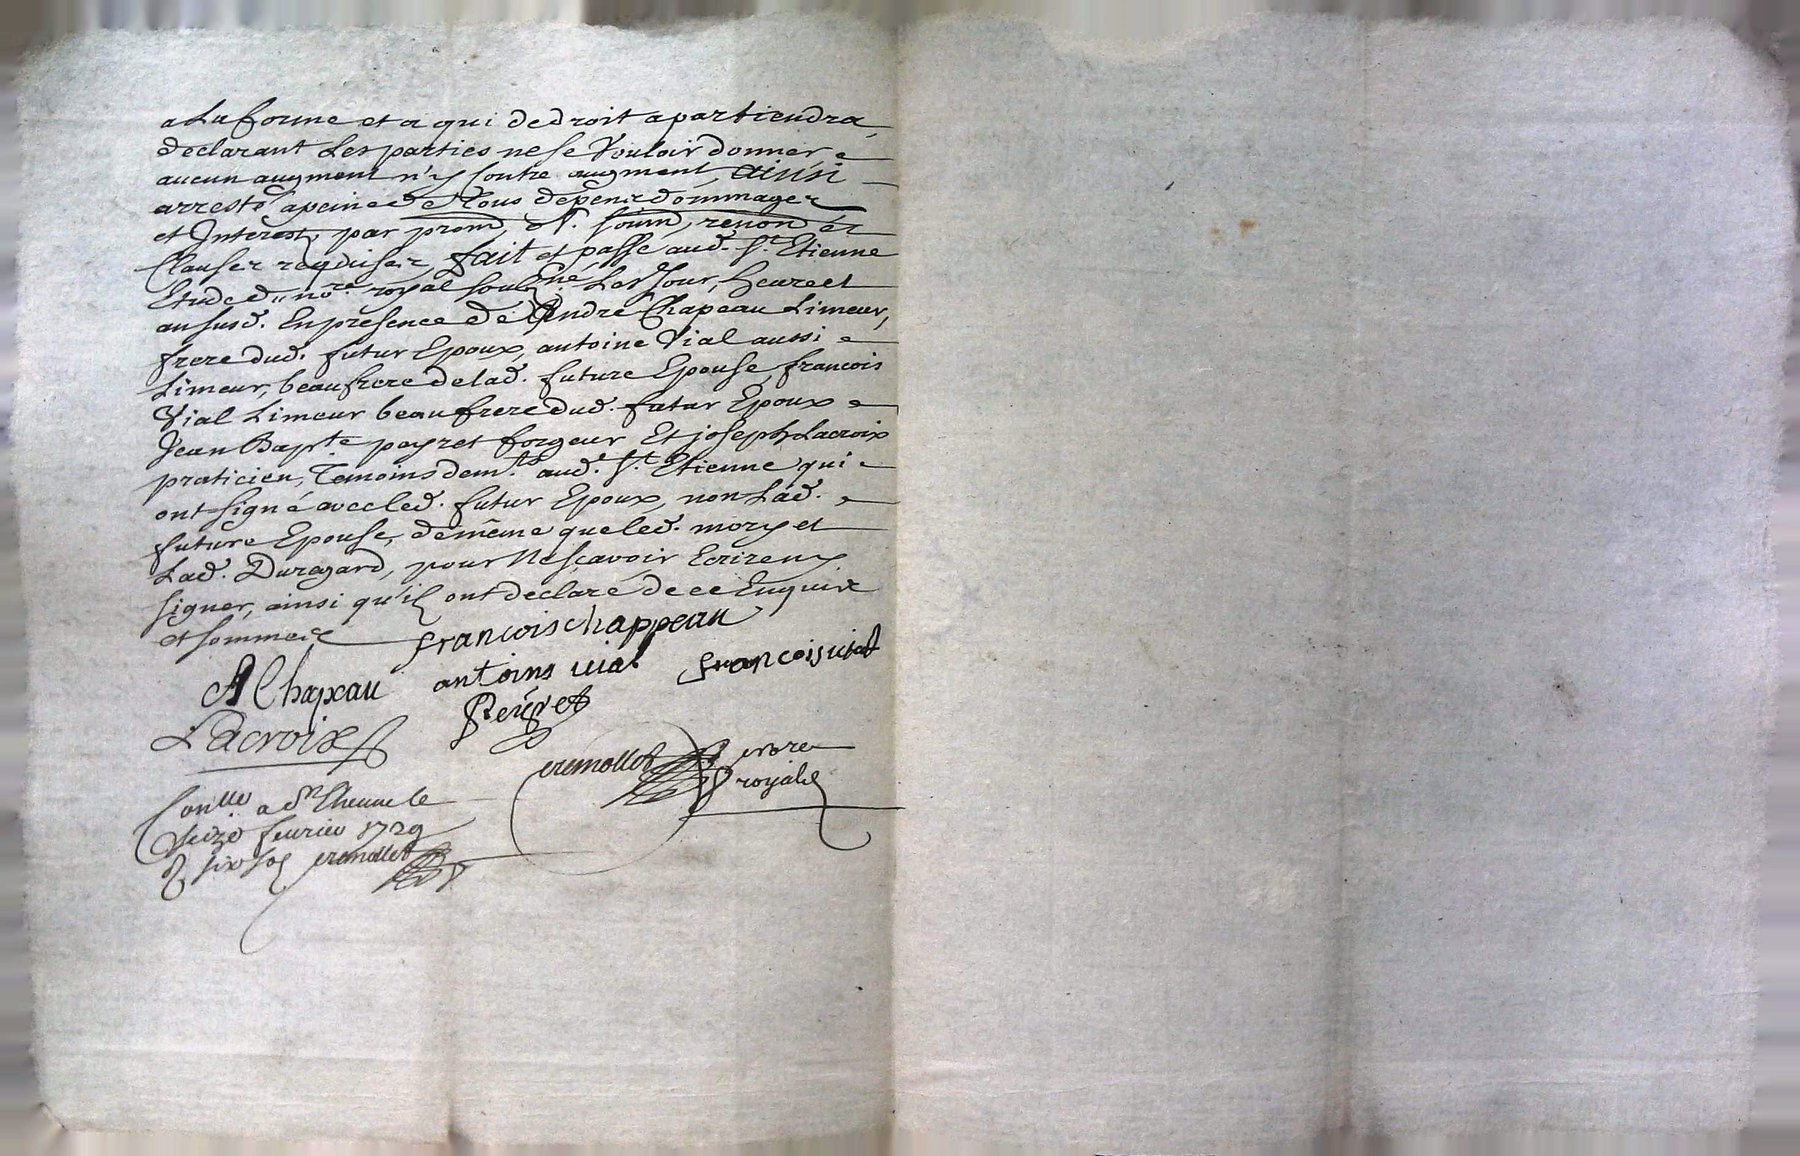 a La forme et a qui de droit apartiendra,
declarant Les parties ne se Vouloir donner
aucun augment n'y Contre augment, ainsi
arresté a peine de Tous depens dommages
et Interest, par prom, soum, renon et
Clauses requises, fait et passé aud. St. Etienne
Etude d. no.re royal soubné. Les Jour, heure et
an susd. En presence de André Chapeau Limeur,
frere dud. futur Epoux, antoine Vial aussi
Limeur, beaufrere de lad. future Epouse, francois
Vial Limeur beaufrere dud. futur Epoux
Jean Bap.te peyret forgeur Et joseph Lacroix
praticien, Temoins dem.ts aud. St. Etienne qui
ont signé avec led. futur Epoux, non Lad.
future Epouse, de même que led. mory et
Lad. Duragard, pour Ne sçavoir Ecrire ny
signer, ainsi qu'il ont declaré de ce Enquis
et sommes
francois chappeau
A Chapeau antoins vial francois vial
Lacroix Peÿret
cremollet no.re
royal
Con.lle a St Etienne le
seize fevrier 1729
R six sol cremollet